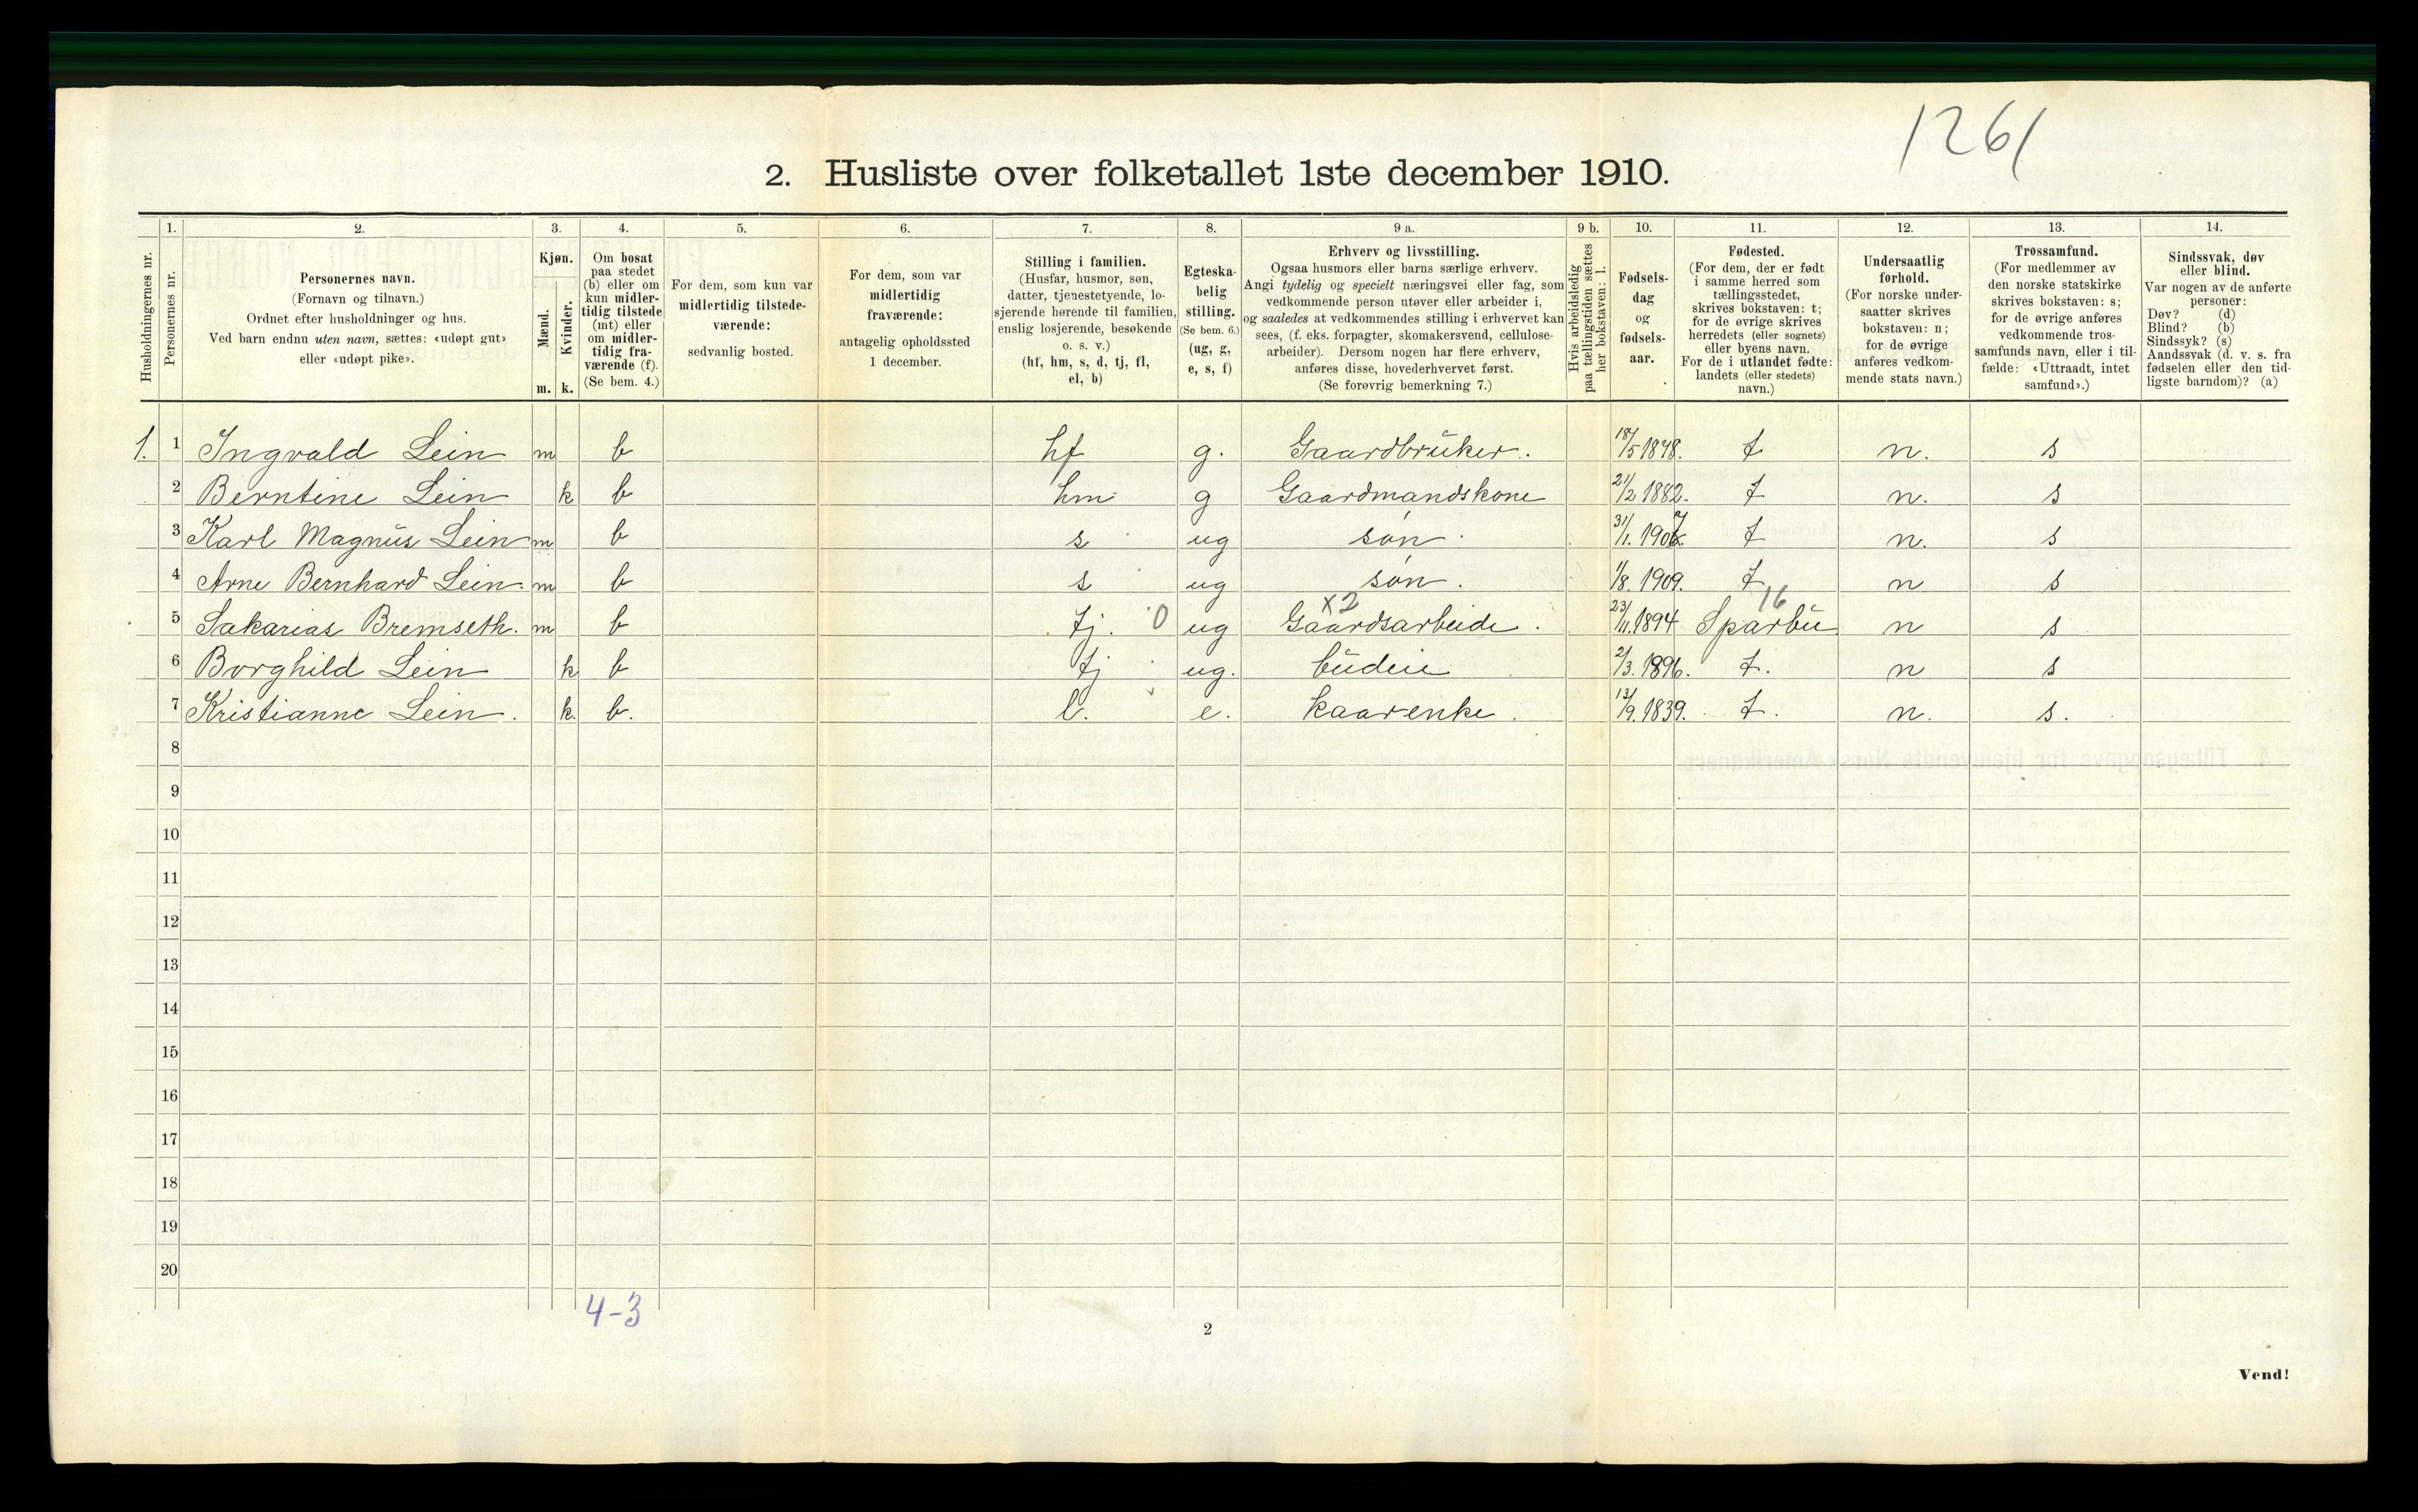 1261
2. Husliste over folketallet 1ste december 1910.
Husholdningernes nr.
1. Personernes nr.
2. Personernes navn. (Fornavn og tilnavn.) Ordnet efter husholdninger og hus. Ved barn endnu uten navn, sættes: «udøpt gut» eller «udøpt pike».
3. Kjøn. Mænd. m. Kvinder. k.
4. Om bosat paa stedet (b) eller om kun midlertidig tilstede (mt) eller om midlertidig fraværende (f). (Se bem. 4.)
5. For dem, som kun var midlertidig tilstedeværende: sedvanlig bosted.
6. For dem, som var midlertidig fraværende: antagelig opholdssted 1 december.
7. Stilling i familien. (Husfar, husmor, søn, datter, tjenestetyende, losjerende hørende til familien, enslig losjerende, besøkende o. s. v.) (hf, hm, s, d, tj, fl, el, b)
8. Egteskabelig stilling. (Se bem. 6.) (ug, g, e, s, f)
9 a. Erhverv og livsstilling. Ogsaa husmors eller barns særlige erhverv. Angi tydelig og specielt næringsvei eller fag, som vedkommende person utøver eller arbeider i, og saaledes at vedkommendes stilling i erhvervet kan sees, (f. eks. forpagter, skomakersvend, cellulosearbeider). Dersom nogen har flere erhverv, anføres disse, hovederhvervet først. (Se forøvrig bemerkning 7.)
9 b. Hvis arbeidsledig paa tællingstiden sættes her bokstaven: l.
10. Fødselsdag og fødselsaar.
11. Fødested. (For dem, der er født i samme herred som tællingsstedet, skrives bokstaven: t; for de øvrige skrives herredets (eller sognets) eller byens navn. For de i utlandet fødte: landets (eller stedets) navn.)
12. Undersaatlig forhold. (For norske undersaatter skrives bokstaven: n; for de øvrige anføres vedkommende stats navn.)
13. Trossamfund. (For medlemmer av den norske statskirke skrives bokstaven: s; for de øvrige anføres vedkommende trossamfunds navn, eller i tilfælde: «Uttraadt, intet samfund».)
14. Sindssvak, døv eller blind. Var nogen av de anførte personer: Døv? (d) Blind? (b) Sindssyk? (s) Aandssvak (d. v. s. fra fødselen eller den tidligste barndom)? (a)
1. 1 Ingvald Lein m b hf g. Gaardbrüker. 18/5 1878. t n. s
2 Berntine Lein k b hm g Gaardmandskone 21/2 1882. t n. s
3 Karl Magnüs Lein m b s ug søn 31/1. 1907 t n. s
4 Arne Bernhard Lein. m b s ug søn. 1/8. 1909. t n s
x2 16
5 Sakarias Bremseth. m b tj. 0 ug Gaardsarbeide. 23/11. 1894 Sparbü n s
6 Borghild Lein k b tj ug. büdeie 2/3. 1896. t. n s
7 Kristianne Lein. k. b. l. e. kaarenke. 13/9. 1839. t. n. s.
8
9
10
11
12
13
14
15
16
17
18
19
20
4-3
2
Vend!